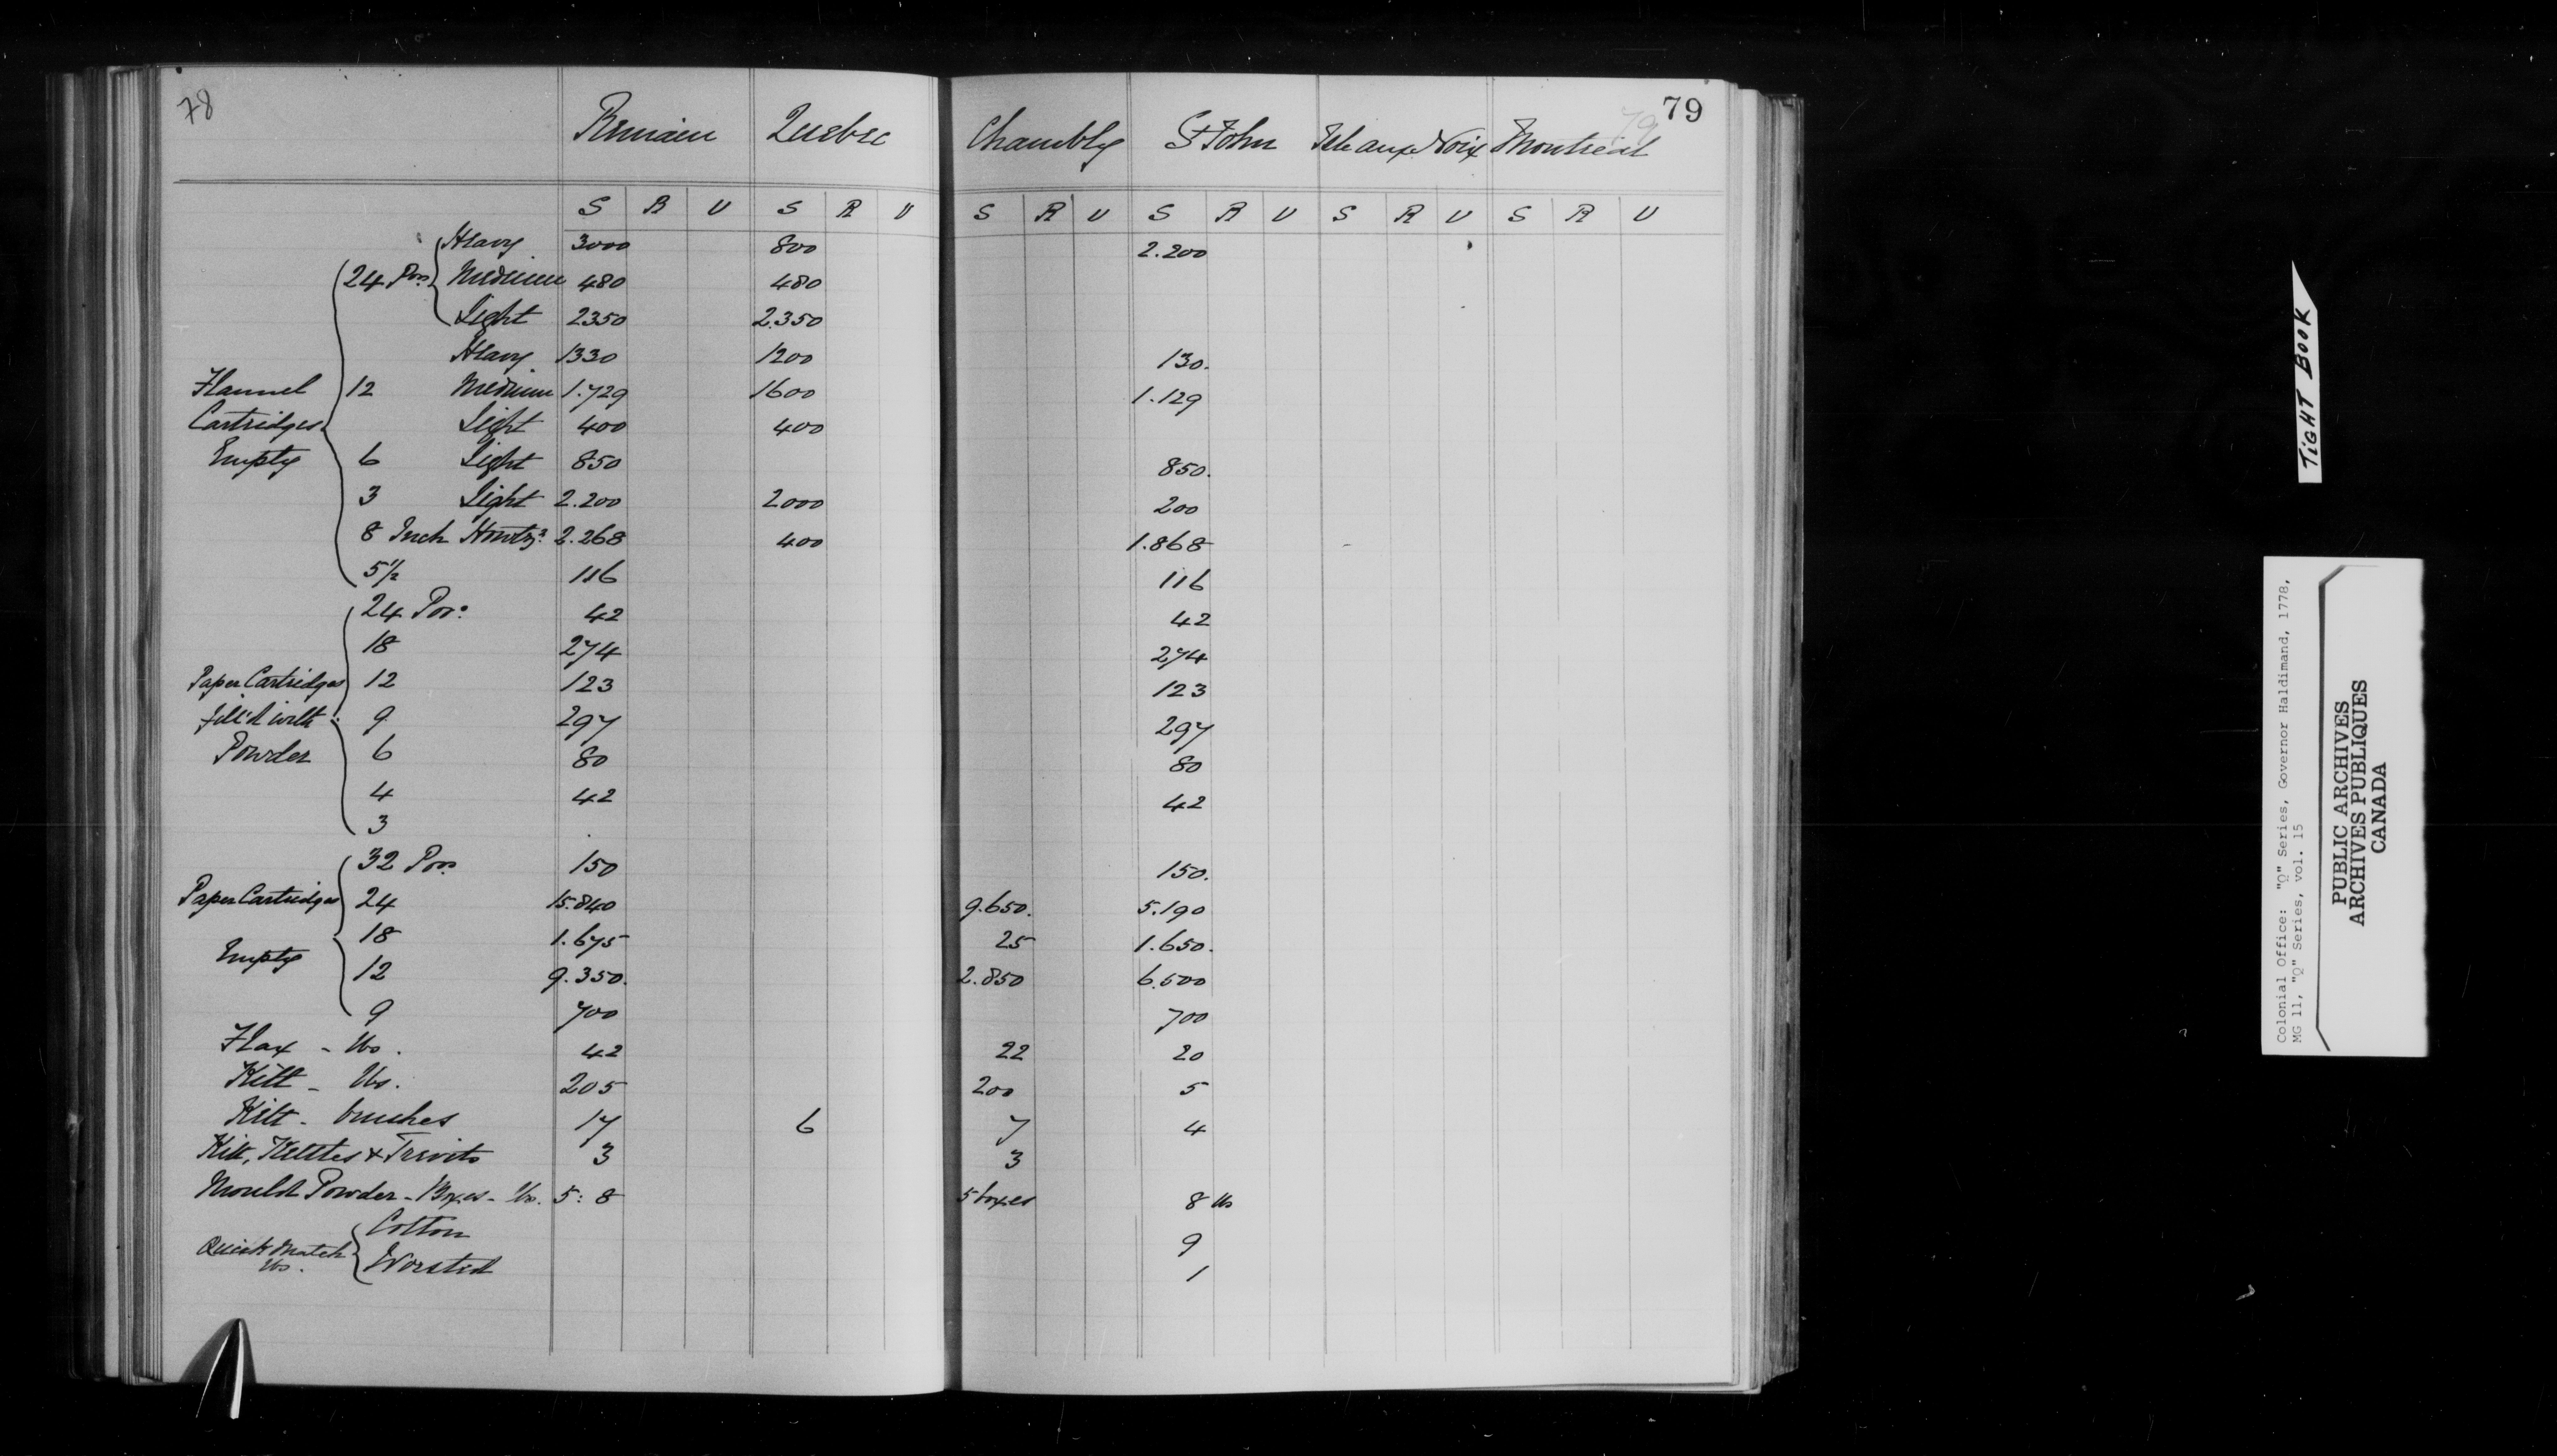 78
79
79
Remain Quebec Chambly St John Isle aux Noix Montreal
S R U S R U S R U S R U S R U S R U
Heavy 3000 800 2.200
24 Pors Medium 480 480
Light 2350 2.350
Heavy 1330 1200 130.
Flannel 12 Medium 1.729 1600 1.129
Cartridges Light 400 400
Empty 6 Light 850 850.
3 Light 2.200 2000 200
8 Inch Howtzs 2.268 400 1.868
5 1/2 116 116
24 Por: 42 42
18 274 274
Paper Cartridges 12 123 123
fill'd with 9 297 297
Powder 6 80 80
4 42 42
3
32 Pors 150 150.
Paper Cartridges 24 15.840 9.650. 5.190
18 1.675 25 1.650.
Empty 12 9.350. 2.850 6.500
9 700 700
Flax - lbs. 42 22 20
Kitt - lbs. 205 200 5
Kitt - brushes 17 6 7 4
Kitt, Kettles & Trivits 3 3
Mould Powder - Boxes - lbs. 5: 8 5 boxes 8 lbs
Cotton 9
Quick Match
lbs. Worsted 1
TIGHT BOOK
Colonial Office: "Q" Series, Governor Haldimand, 1778,
MG 11, "Q" Series, vol. 15
PUBLIC ARCHIVES
ARCHIVES PUBLIQUES
CANADA